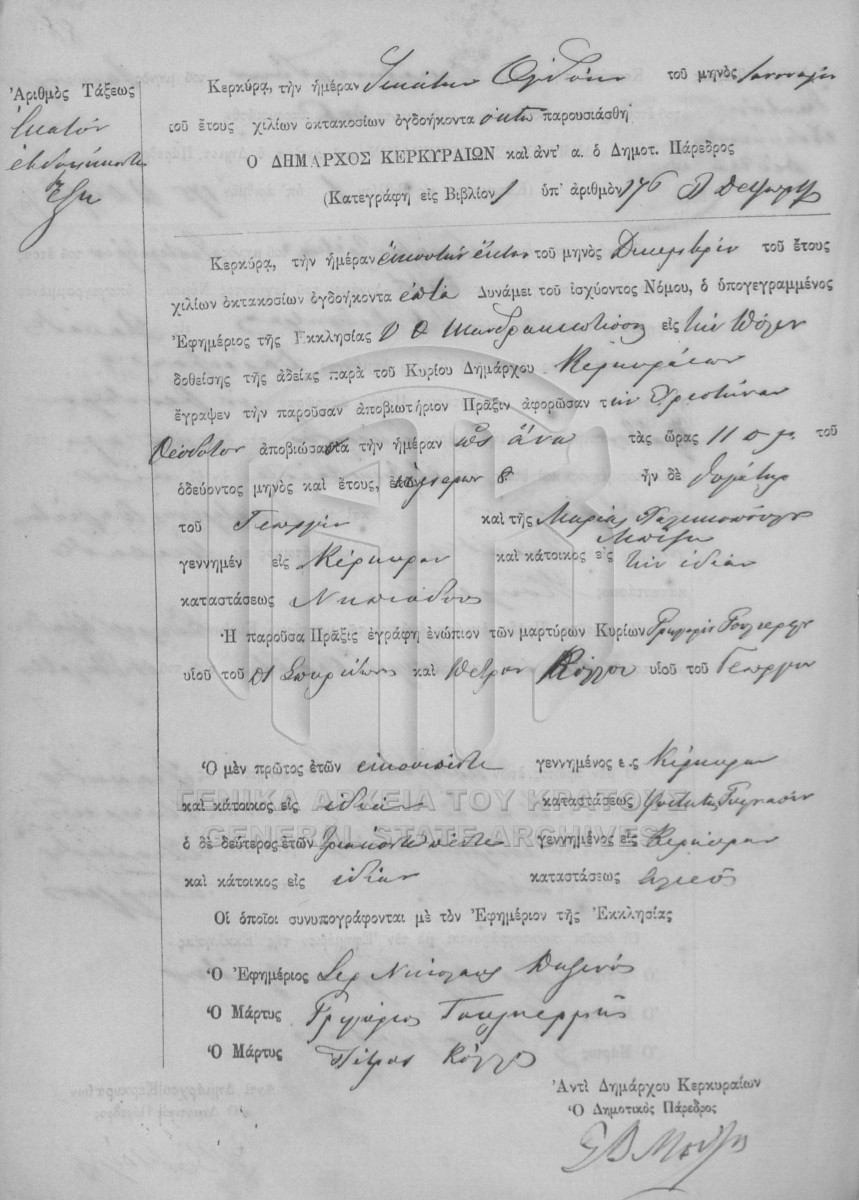 Ἀριθμὸς Τάξεως
Ἑκατόν
ἑβδομήκοντα
ἕξη
Κερκύρᾳ, τὴν ἡμέραν Ὀγδόην τοῦ μηνὸς Ἰανουαρίου
τοῦ ἔτους χιλίων ὀκτακοσίων ὀγδοήκοντα ὀκτὼ παρουσιάσθη
Ὁ ΔΗΜΑΡΧΟΣ ΚΕΡΚΥΡΑΙΩΝ καὶ ἀντ' α. ὁ Δημοτ. Πάρεδρος
(Κατεγράφη εἰς Βιβλίον 1 ὑπ' ἀριθμὸν 176
Κερκύρᾳ, τὴν ἡμέραν εἰκοστὴν ἕκτην τοῦ μηνὸς Δεκεμβρίου τοῦ ἔτους
χιλίων ὀκτακοσίων ὀγδοήκοντα ἑπτὰ Δυνάμει τοῦ ἰσχύοντος Νόμου, ὁ ὑπογεγραμμένος
Ἐφημέριος τῆς Ἐκκλησίας Υ Θ Μανδρακιωτίσσης εἰς τὴν Πόλιν
δοθείσης τῆς ἀδείας παρὰ τοῦ Κυρίου Δημάρχου Κερκυραίων
ἔγραψεν τὴν παροῦσαν ἀποβιωτήριον Πρᾶξιν ἀφορῶσαν τὴν
Θεόδοτον ἀποβιώσασα τὴν ἡμέραν ὡς ἄνω τὰς ὥρας 11 π.μ. τοῦ
ὁδεύοντος μηνὸς καὶ ἔτους, ἡμερῶν 8 ἦν δὲ θυγάτηρ
τοῦ Γεωργίου καὶ τῆς Μαρίας
γεννημέν εἰς Κέρκυραν καὶ κάτοικος εἰς τὴν ἰδίαν
καταστάσεως Νηπιώδους
Ἡ παροῦσα Πρᾶξις ἐγράφη ἐνώπιον τῶν μαρτύρων Κυρίων Γρηγορίου
υἱοῦ τοῦ Σπυρίδωνος καὶ Πέτρου Κόλλα υἱοῦ τοῦ Γεωργίου
Ὁ μὲν πρῶτος ἐτῶν εἰκοσιπέντε γεννημένος ε.ς Κέρκυραν
καὶ κάτοικος εἰς ἰδίαν καταστάσεως
ὁ δὲ δεύτερος ἐτῶν τριάκοντα πέντε γεννημένος εἰς Κέρκυραν
καὶ κάτοικος εἰς ἰδίαν καταστάσεως ἁλιεὺς
Οἱ ὁποῖοι συνυπογράφονται μὲ τὸν Ἐφημέριον τῆς Ἐκκλησίας
Ὁ Ἐφημέριος Ἱερ Νικόλαος
Ὁ Μάρτυς Γρηγόριος
Ὁ Μάρτυς Πέτρος Κόλλα
Ἀντὶ Δημάρχου Κερκυραίων
Ὁ Δημοτικὸς Πάρεδρος
ΓΕΝΙΚΑ ΑΡΧΕΙΑ ΤΟΥ ΚΡΑΤΟΥΣ
GENERAL STATE ARCHIVES